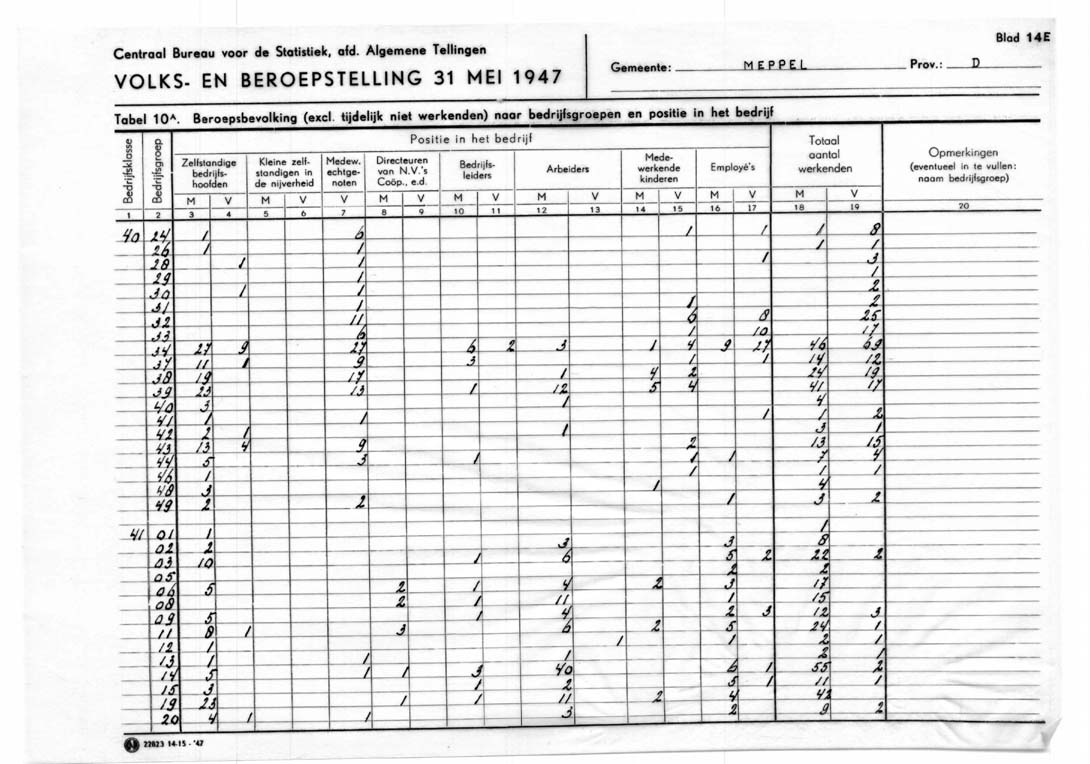 Centraal Bureau voor de Statistiek, afd. Algemene Tellingen
VOLKS- EN BEROEPSTELLING 31 MEI 1947
Blad 14E
Gemeente: MEPPEL Prov.: D
Tabel 10A. Beroepsbevolking (excl. tijdelijk niet werkenden) naar bedrijfsgroepen en positie in het bedrijf
Bedrijfsklasse
Bedrijfsgroep
Positie in het bedrijf
Zelfstandige bedrijfs-hoofden
Kleine zelf-standigen in de nijverheid
Medew. echtge-noten
Directeuren van N.V.'s Coöp., e.d.
Bedrijfs-leiders
Arbeiders
Mede-werkende kinderen
Employé's
Totaal aantal werkenden
Opmerkingen (eventueel in te vullen: naam bedrijfsgroep)
M V M V V M V M V M V M V M V M V
1 2 3 4 5 6 7 8 9 10 11 12 13 14 15 16 17 18 19 20
40 24 1 6 1 1 1 8
26 1 1 1 1
28 1 1 1 3
29 1 1
30 1 1 2
31 1 1 2
32 11 6 8 25
33 6 1 10 17
34 27 9 27 6 2 3 1 4 9 27 46 69
37 11 1 9 3 1 1 14 12
38 19 17 1 4 2 24 19
39 23 13 1 12 5 4 41 17
40 3 1 4
41 1 1 1 1 2
42 2 1 1 3 1
43 13 4 9 2 13 15
44 5 3 1 1 1 7 4
46 1 1 1 1
48 3 1 4
49 2 2 1 3 2
41 01 1 1
02 2 3 3 8
03 10 1 6 5 2 22 2
05 2 2
06 5 2 1 4 2 3 17
08 2 1 11 1 15
09 5 1 4 2 3 12 3
11 8 1 3 6 2 5 24 1
12 1 1 1 2 1
13 1 1 1 2 1
14 5 1 1 3 40 6 1 55 2
15 3 1 2 5 1 11 1
19 23 1 1 11 2 4 42
20 4 1 1 3 2 9 2
22823 14-15 - '47